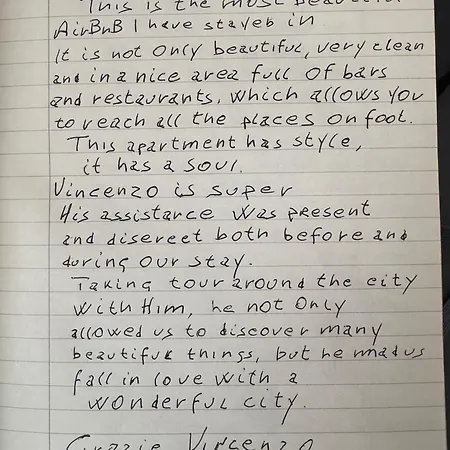 This is the most beautiful
AirBnB I have stayed in
It is not only beautiful, very clean
and in a nice area full of bars
and restaurants, which allows you
to reach all the places on foot.
This apartment has style,
it has a soul.
Vincenzo is super
His assistance was present
and discreet both before and
during our stay.
Taking tour around the city
with Him, he not only
allowed us to discover many
beautiful things, but he mad us
fall in love with a
wonderful city.
Grazie Vincenzo